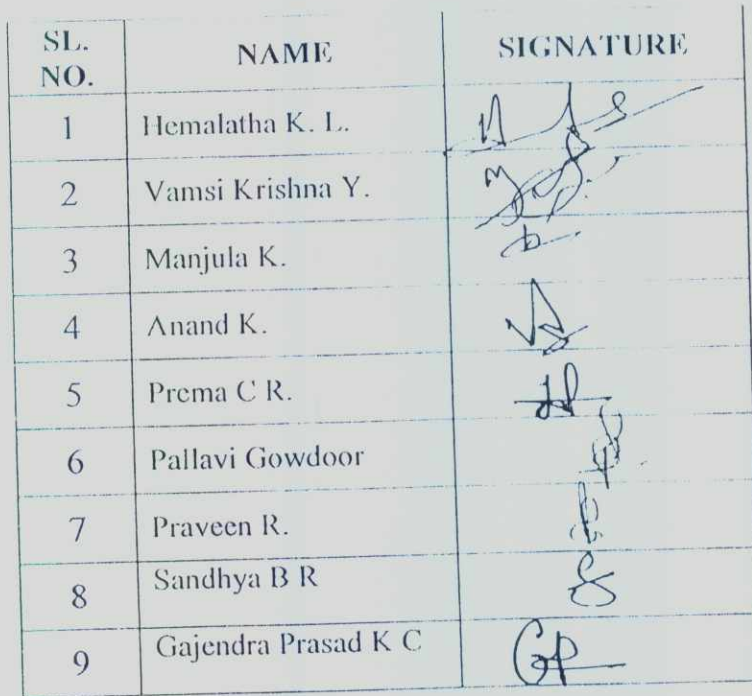 SL. NO. NAME SIGNATURE
1 Hemalatha K. L.
2 Vamsi Krishna Y.
3 Manjula K.
4 Anand K.
5 Prema C R.
6 Pallavi Gowdoor
7 Praveen R.
8 Sandhya B R
9 Gajendra Prasad K C